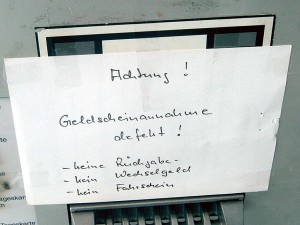 Achtung !
Geldscheinannahme
defekt !
- keine Rückgabe -
- kein Wechselgeld
- kein Fahrschein